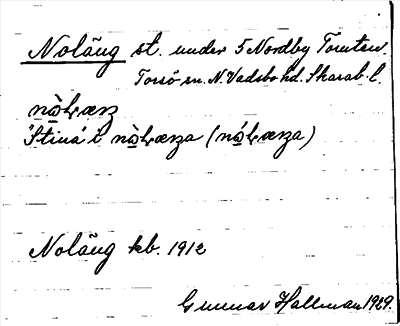 Noläng st. under 5 Nordby Tomten.
Torsö sn. N. Vadsbo hd. Skarab. l.
nò̱ꞎæŋ
"Stina" i nò̱ꞎæŋa (nó̱ꞎæŋa)
Noläng kb. 1912
Gunnar Hallman 1929.